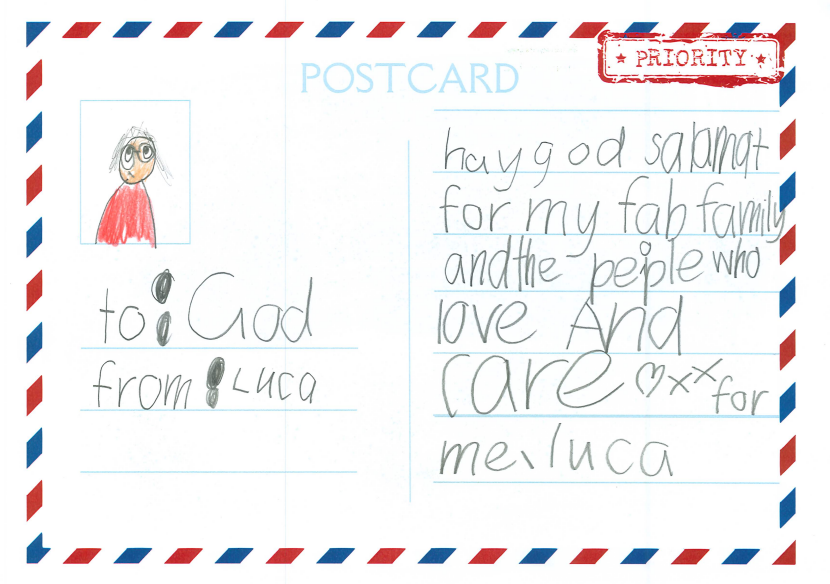 POSTCARD
★ PRIORITY ★
to: God
from: Luca
hay god salamat
for my fab family
and the peiple who
love And
care ♡xx for
me. luca